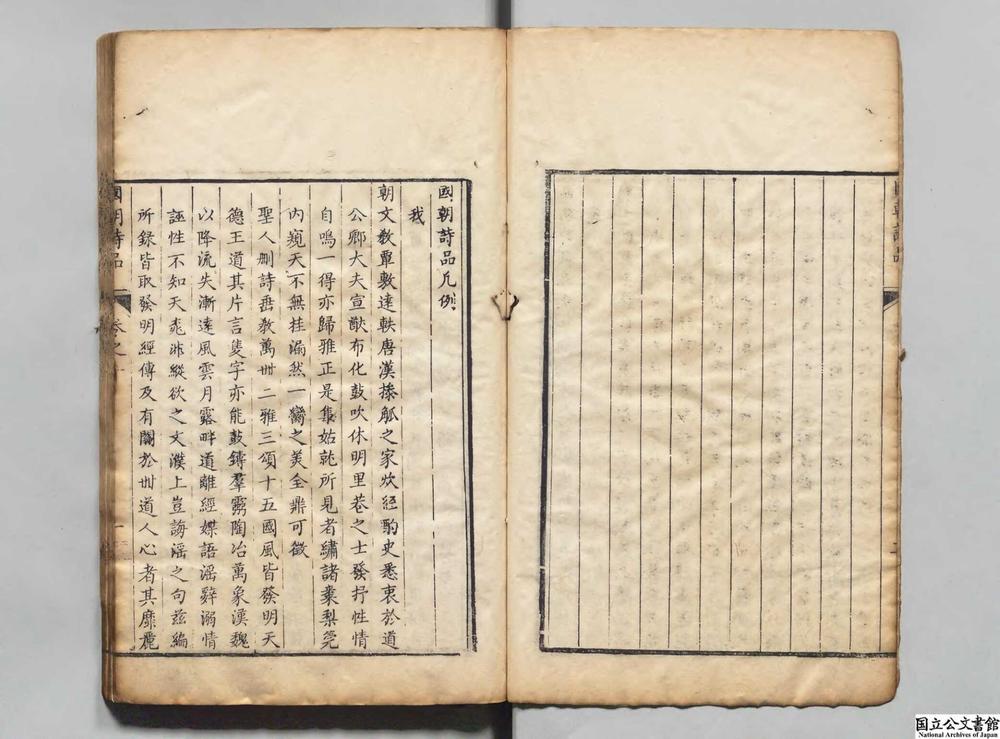 國朝詩品凡例
我
朝文教覃敷達軼唐漢搽觚之家炊經酌史悉衷於道
公卿大夫宣猷布化鼓吹休明里巷之士發抒性情
自鳴一得亦歸雅正是集姑就所見者繡諸棗梨筦
內窺天不無挂漏然一臠之美全鼎可徵
聖人刪詩垂教萬世二雅三頌十五國風皆發明天
德王道其片言隻字亦能鼓鑄羣霧陶冶萬象漢魏
以降流失漸遠風雲月露畔道離經媒語滛辭溺情
誣性不知天竾非縱欲之文濮上豈誨滛之句茲編
所錄皆取發明經傳及有關於世道人心者其靡麗
國朝詩品
卷之
一
國立公文書館
National Archives of Japan